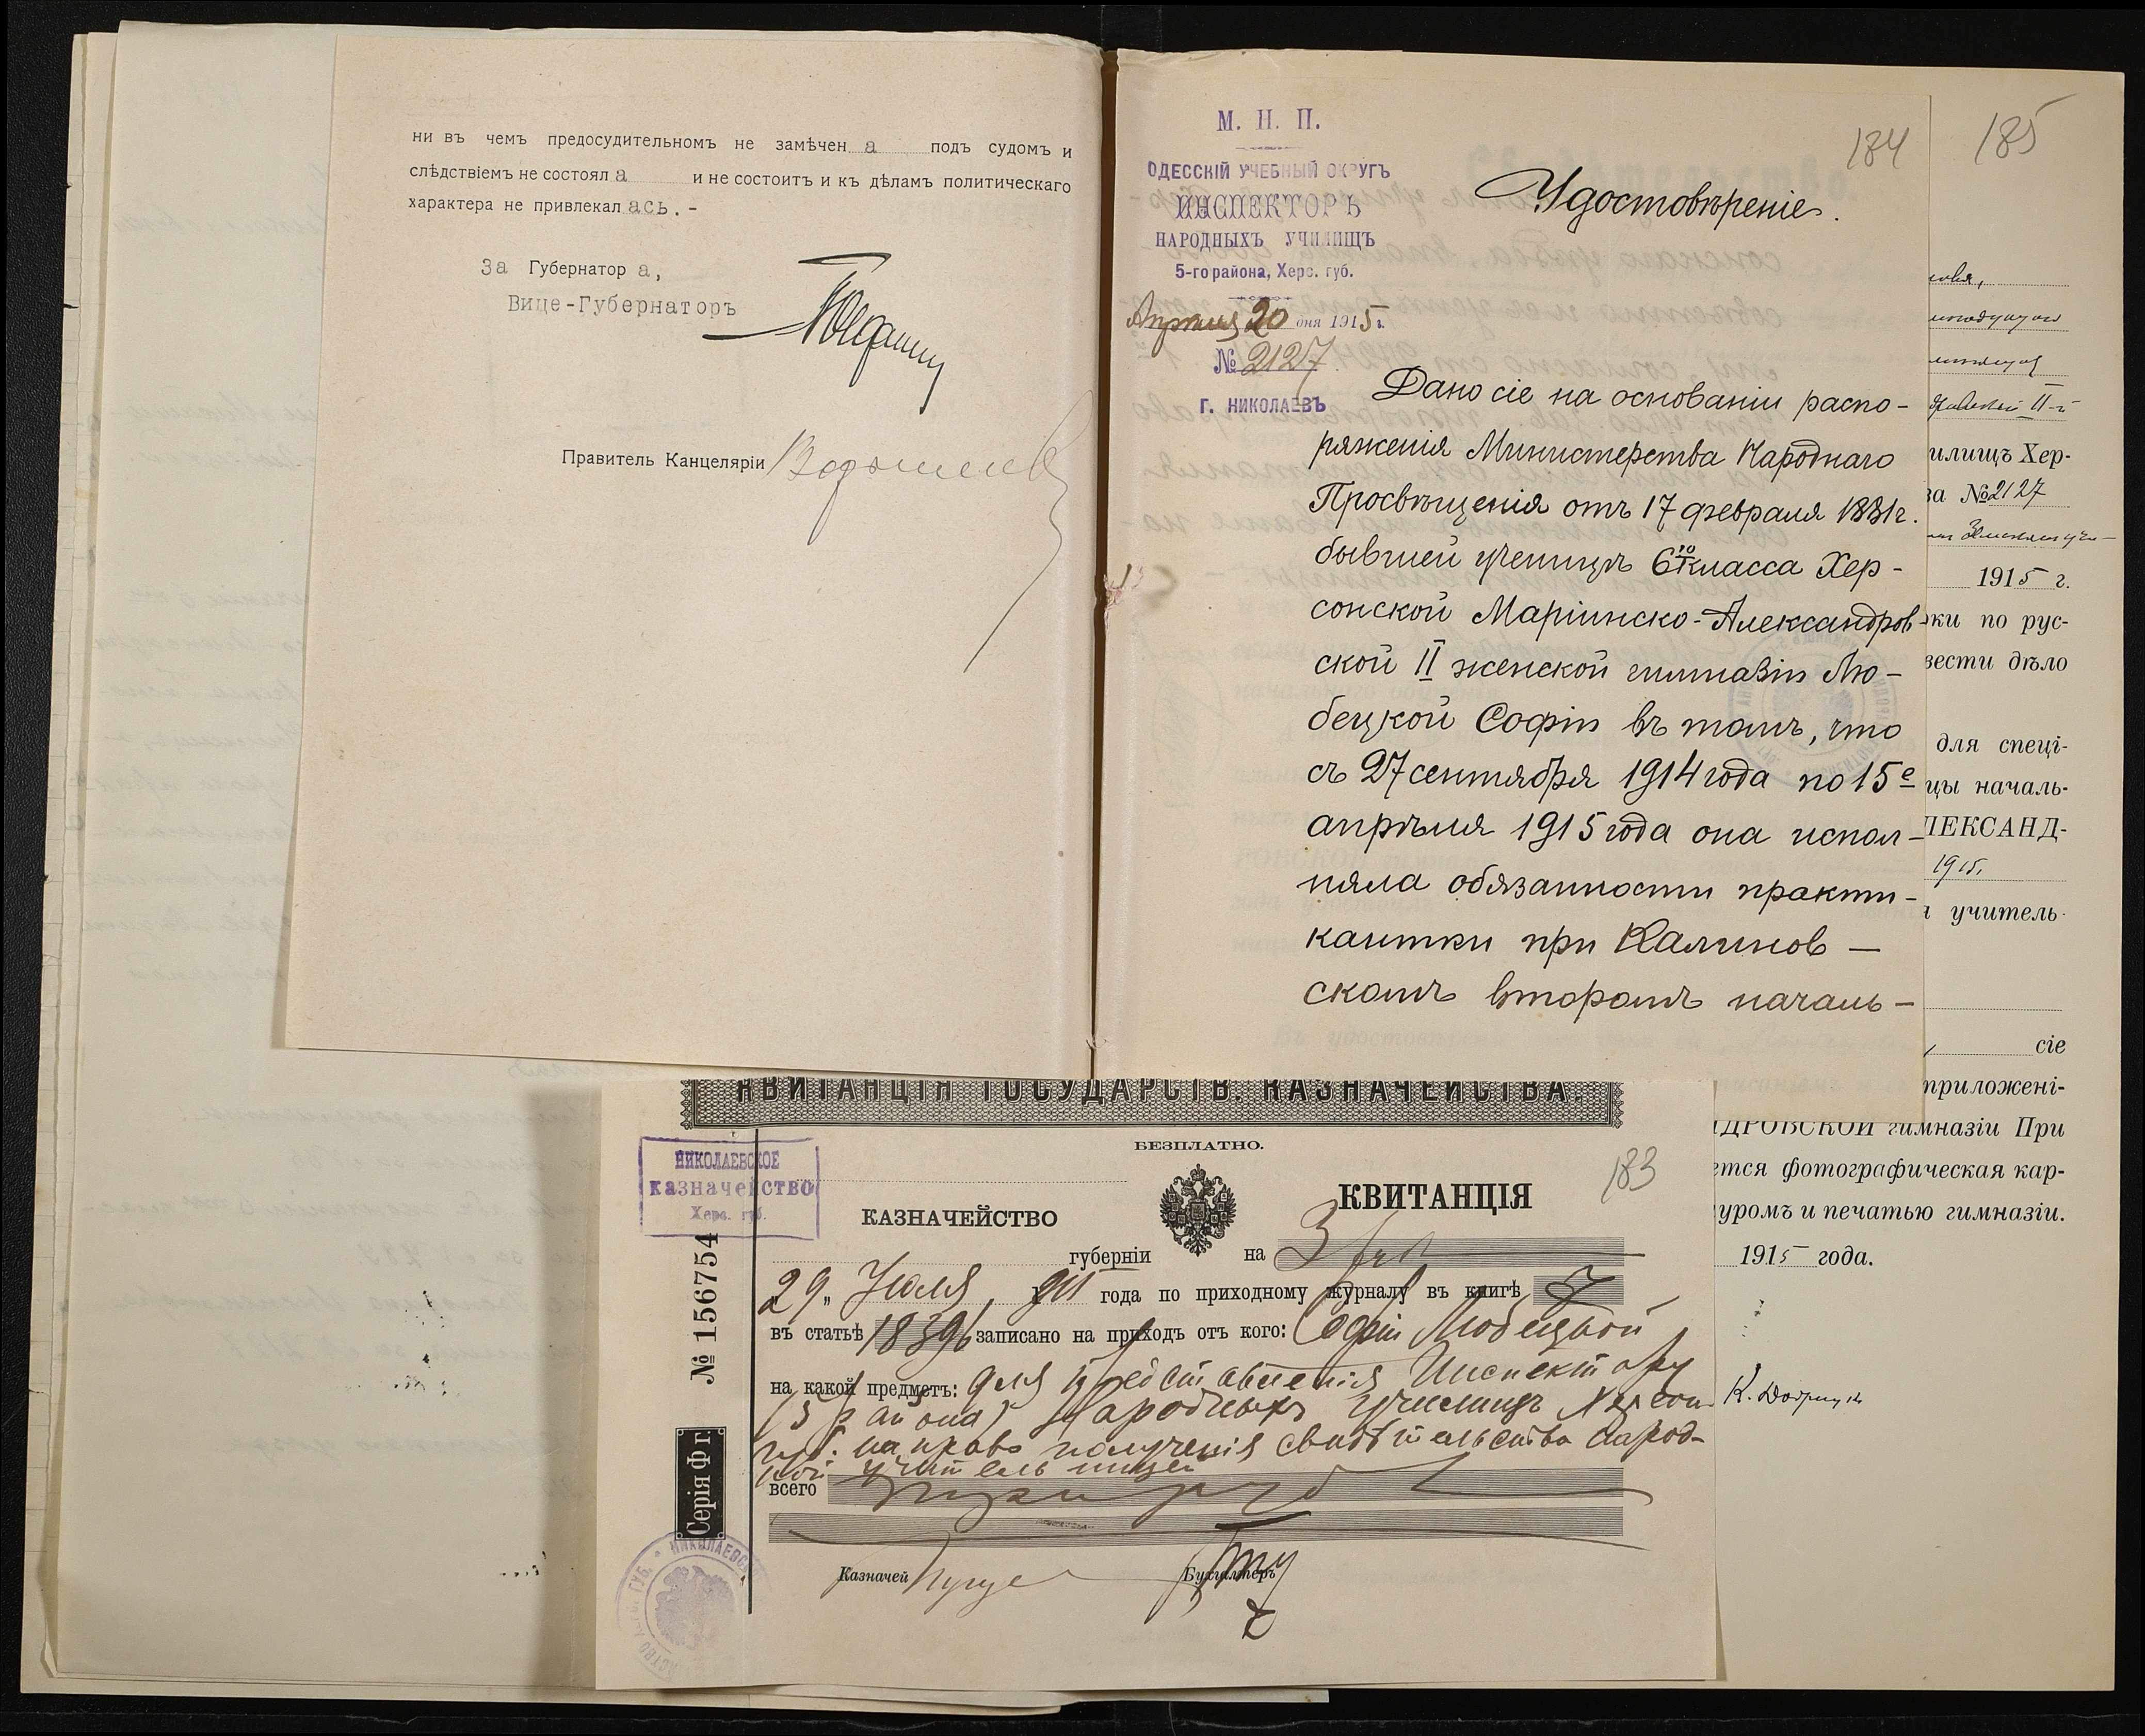 ни въ чемъ предосудительномъ не замѣчен а подъ судомъ и
слѣдствіемъ не состоял а и не состоитъ и къ дѣламъ политическаго
характера не привлекал ась. -
За Губернатор а,
Вице-Губернаторъ
Правитель Канцеляріи
М. Н. П.
ОДЕССКІЙ УЧЕБНЫЙ ОКРУГЪ
ИНСПЕКТОРЪ
НАРОДНЫХЪ УЧИЛИЩЪ
5-го района, Херс. губ.
Апрѣля 20 дня 1915 г.
№ 2127
Г. НИКОЛАЕВЪ
184
Удостовѣреніе.
Дано сіе на основаніи распо-
ряженія Министерства Народнаго
Просвѣщенія отъ 17 февраля 1881 г.
бывшей ученицѣ 6го класса Хер-
сонской Маріинско-Александров-
ской II женской гимназіи Лю-
бецкой Софіи въ томъ, что
съ 27 сентября 1914 года по 15е
апрѣля 1915 года она испол-
няла обязанности практи-
кантки при Калинов-
скомъ второмъ началь-
185
II-й
илищъ Хер-
за № 2127
1915 г.
ки по рус-
вести дѣло
для спеці-
цы началь-
ЛЕКСАНД-
1915.
учитель
сіе
приложені-
ДРОВСКОЙ гимназіи При
ется фотографическая кар-
уромъ и печатью гимназіи.
1915 года.
КВИТАНЦІЯ ГОСУДАРСТВ. КАЗНАЧЕЙСТВА.
БЕЗПЛАТНО.
НИКОЛАЕВСКОЕ
казначейство
Херс. губ.
183
КАЗНАЧЕЙСТВО
КВИТАНЦІЯ
губерніи на 3 руб
29 " Іюля, 1915 года по приходному журналу въ книгѣ 7
въ статьѣ 18396 записано на приходъ отъ кого: Софіи Любецкой
на какой предметъ: для представленія Инспектору
(5 района) Народныхъ училищъ Херсон.
губ. на право полученія свидѣтельства народ-
ной учительницы
всего три руб
Казначей
Бухгалтеръ
№ 1566754
Серія Ф г.